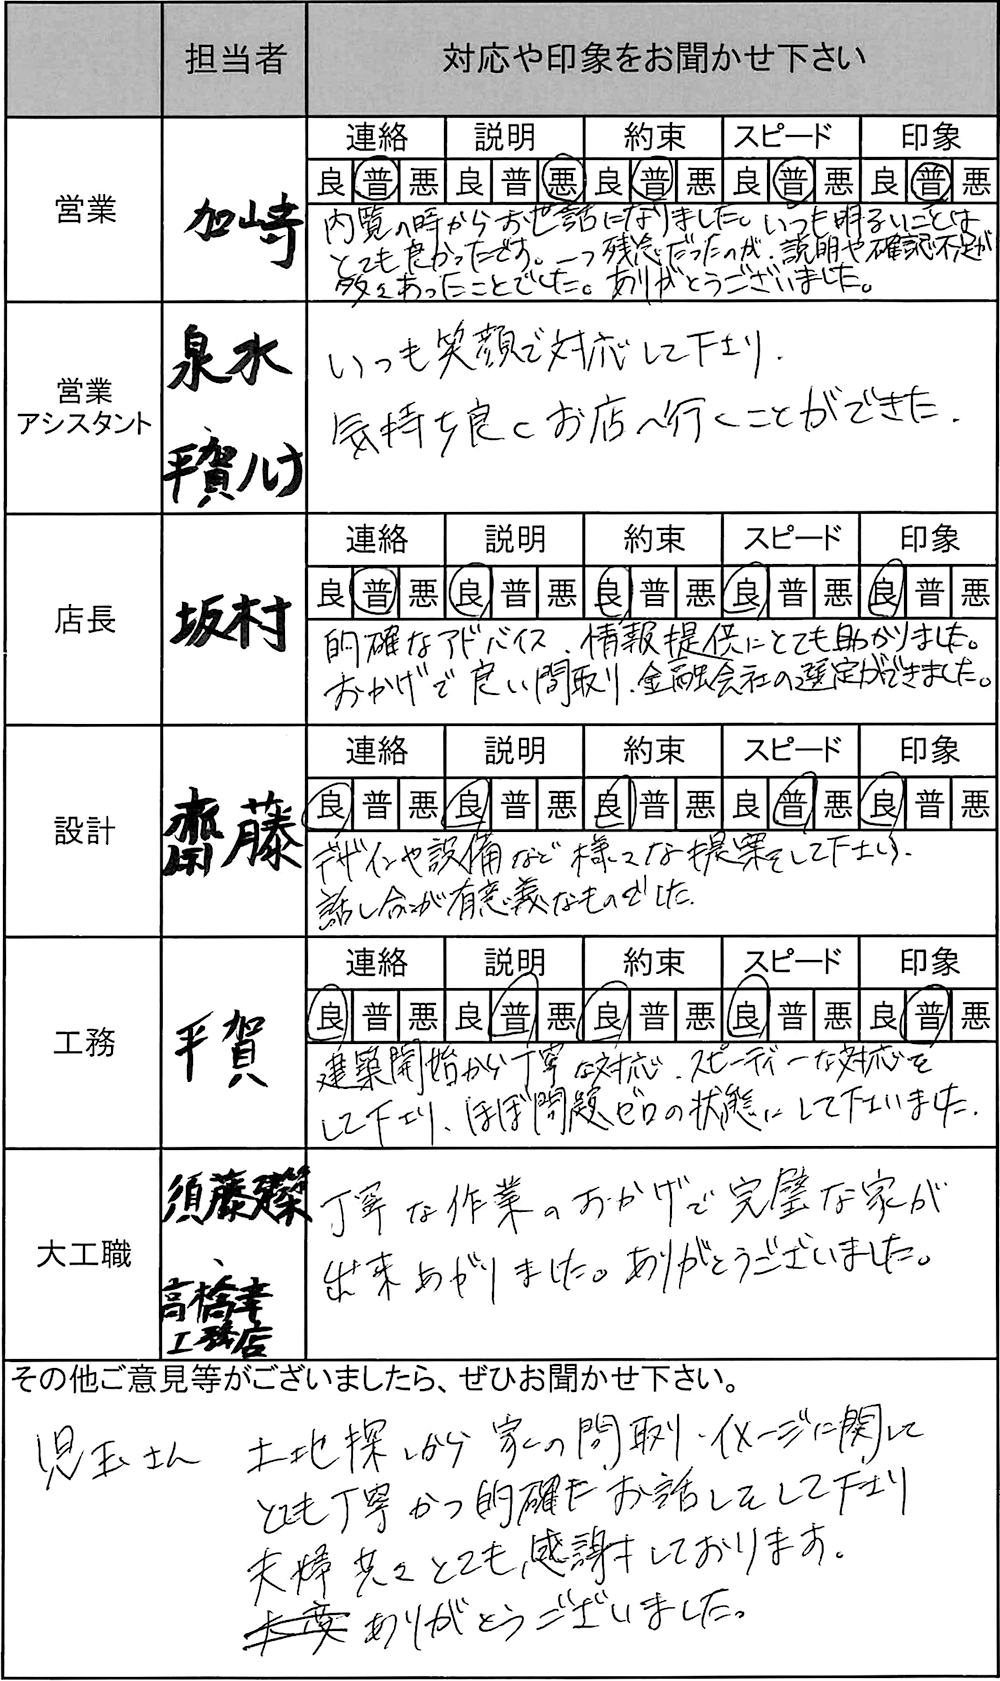 担当者 対応や印象をお聞かせ下さい
営業 加崎
連絡 説明 約束 スピード 印象
良 普 悪 良 普 悪 良 普 悪 良 普 悪 良 普 悪
内覧の時からお世話になりました。いつも明るいことは
とても良かったです。一つ残念だったのが、説明や確認不足が
多々あったことでした。ありがとうございました。
営業
アシスタント
泉水
、
平賀ルナ
いつも笑顔で対応して下さり、
気持ち良くお店へ行くことができた。
店長 坂村
連絡 説明 約束 スピード 印象
良 普 悪 良 普 悪 良 普 悪 良 普 悪 良 普 悪
的確なアドバイス、情報提供にとても助かりました。
おかげで良い間取り、金融会社の選定ができました。
設計 齋藤
連絡 説明 約束 スピード 印象
良 普 悪 良 普 悪 良 普 悪 良 普 悪 良 普 悪
デザインや設備など様々な提案をして下さり、
話し合いが有意義なものでした。
工務 平賀
連絡 説明 約束 スピード 印象
良 普 悪 良 普 悪 良 普 悪 良 普 悪 良 普 悪
建築開始から丁寧な対応、スピーディーな対応を
して下さり、ほぼ問題ゼロの状態にして下さいました。
大工職
須藤建築
、
高橋幸
工務店
丁寧な作業のおかげで完璧な家が
出来あがりました。ありがとうございました。
その他ご意見等がございましたら、ぜひお聞かせ下さい。
児玉さん 土地探しから家の間取り・イメージに関して
とても丁寧かつ的確なお話しをして下さり
夫婦共々とても感謝をしております。
ありがとうございました。